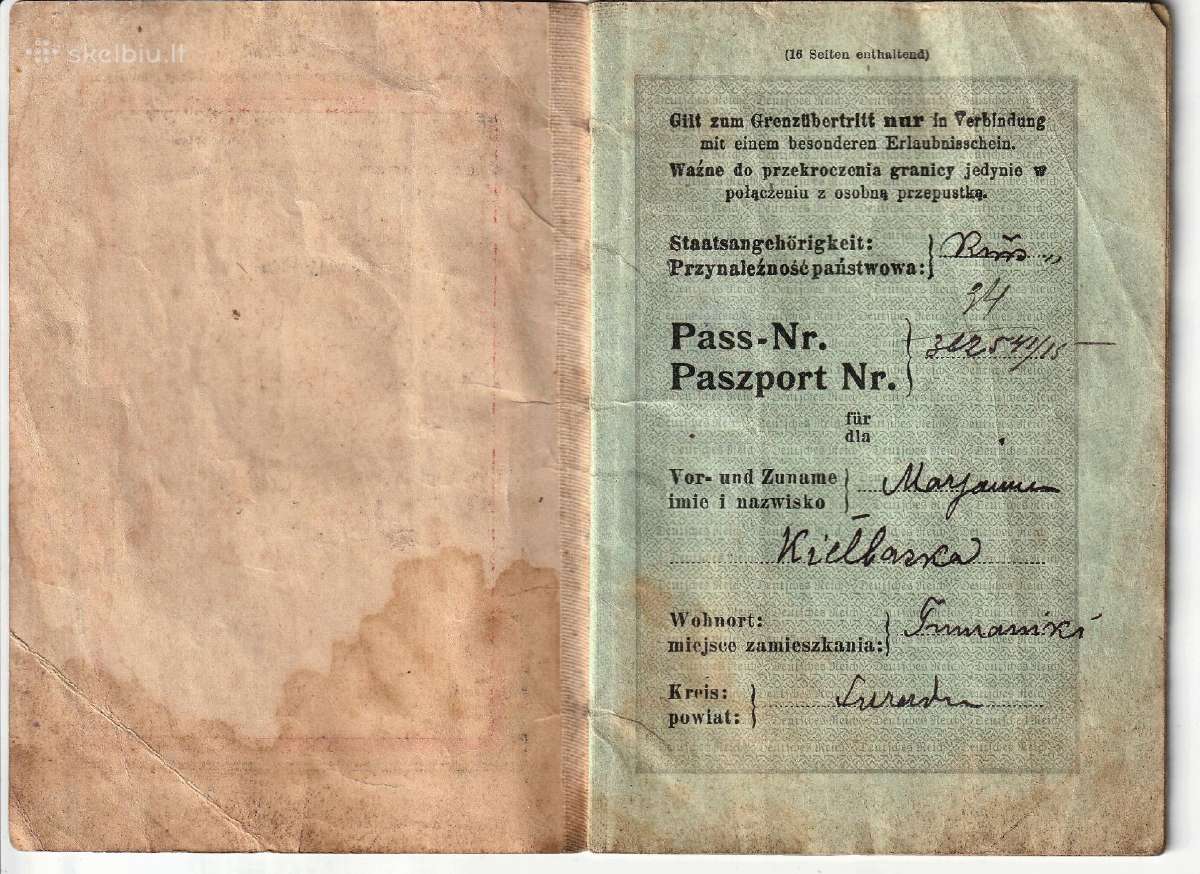 skelbiu.lt
(16 Seiten enthaltend)
Gilt zum Grenzübertritt nur in Verbindung
mit einem besonderen Erlaubnisschein.
Ważne do przekroczenia granicy jedynie w
połączeniu z osobną przepustką.
Staatsangehörigkeit:
Przynależność państwowa:
Pass-Nr.
Paszport Nr.
für
dla
Vor- und Zuname
imię i nazwisko
Kiełbaska
Wohnort:
miejsce zamieszkania:
Kreis:
powiat: